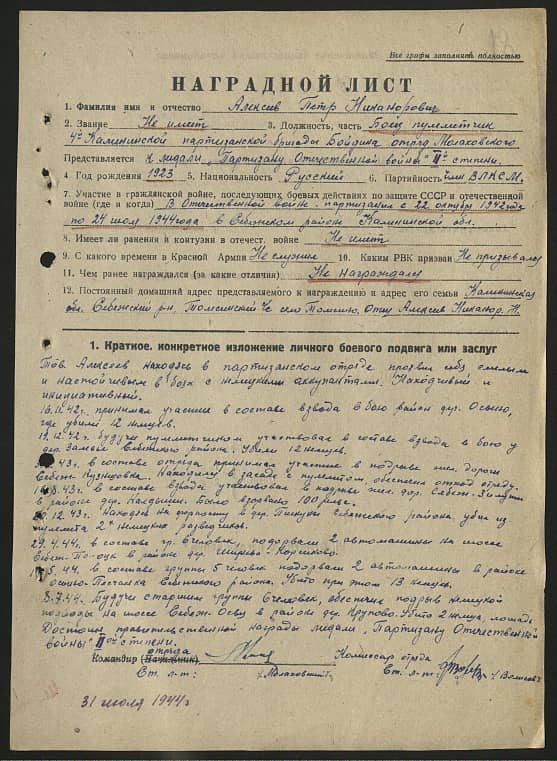 Все графы заполнять полностью
НАГРАДНОЙ ЛИСТ
1. Фамилия имя и отчество Алексеев Петр Никанорович
2. Звание Не имеет 3. Должность, часть Боец пулеметчик
4й Калининской партизанской бригады Бойдина отряд Молаковского
Представляется к медали „Партизану Отечественной войны" IIй степени.
4. Год рождения 1923 5. Национальность Русский 6. Партийность член ВЛКСМ.
7. Участие в гражланской войне, последующих боевых действиях по защите СССР и отечественной
войне (где и когда) В Отечественной войне партизаном с 22 октября 1942 года
по 24 июля 1944 года в Себежском районе Калининской обл.
8. Имеет ли ранения и контузии в отечест. войне Не имеет
9. С какого времени в Красной Армии Не служил 10. Каким РВК призван Не призывался
11. Чем ранее награждался (за какие отличия) Не награждался
12. Постоянный домашний адрес представляемого к награждению и адрес его семьи Калининская
обл. Себежский р-н, Томсинский с/с село Томсино. Отец Алексеев Никанор
1. Краткое, конкретное изложение личного боевого подвига или заслуг
Тов. Алексеев находясь в партизанском отряде проявил себя смелым
и настойчивым в боях с немецкими оккупантами. Находчивый и
инициативный.
16.11.42г. принимал участие в составе взвода в бою район дер. Осыно,
где убили 12 немцев.
19.12.42г. будучи пулеметчиком участвовал в составе взвода в бою у
дер. Себежского района. Убили 12 немцев.
43г. в составе отряда принимал участие в подрыве жел. дороги
Себеж Кузнецовка. Находился в засаде с пулеметом, обеспечил отход отряду.
8.43г. в составе взвода участвовал в подрыве жел. дор. Себеж-Зилупе
в районе дер. Было взорвано 100 рельс.
20.12.43г. Находясь на в дер. Пискуны Себежского района, убил из
пулемета 2х немецких разведчиков.
29.4.44г. в составе гр. 6 человек, подорвали 2 автомашины на шоссе
Себеж По-оцк в районе дер.
5.44г. в составе группы 5 человек подорвали 2 автомашины в районе
Осыно-Песчанка Себежского района. Убито при этом 13 немцев.
8.7.44г. Будучи старшим группы 6 человек, обеспечил подрыв немецкой
на шоссе Себеж-Освея в районе дер. Крупово. Убито 2 немца, лошадь
Достоин правительственной награды медали „Партизану Отечественной
войны" IIой степени.
отряда
Командир (Начальник) Комиссар отряда
Ст. л-т: /Молаковский/ Ст. л-т:
31 июля 1944г